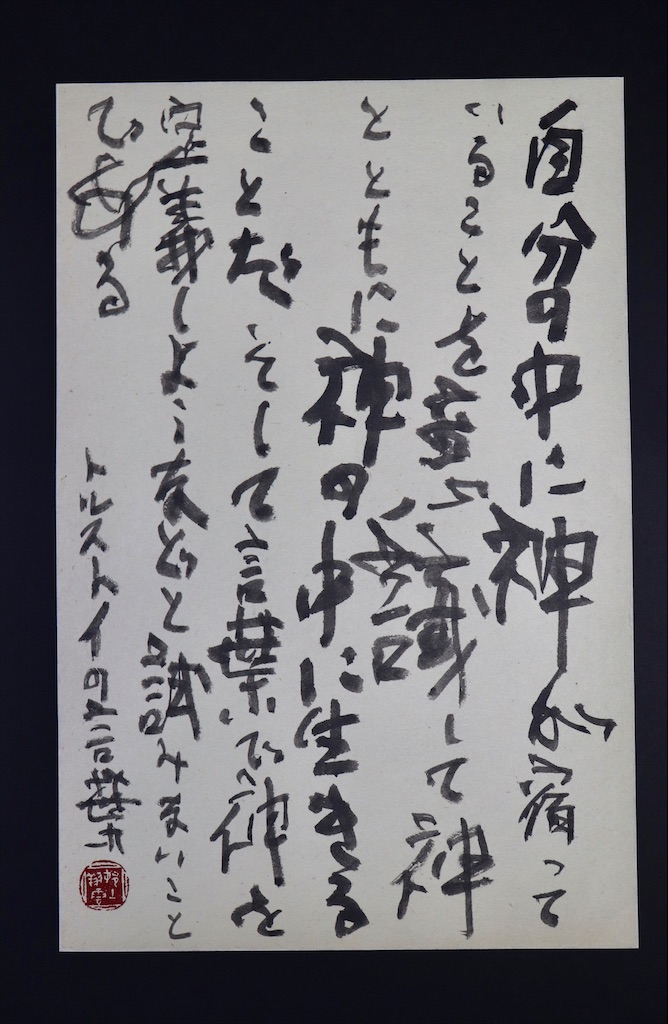 自分の中に神が宿って
いることを意識して神
とともに神の中に生きる
ことだそして言葉で神を
定義しようなどと試みないこと
である
トルストイの言葉